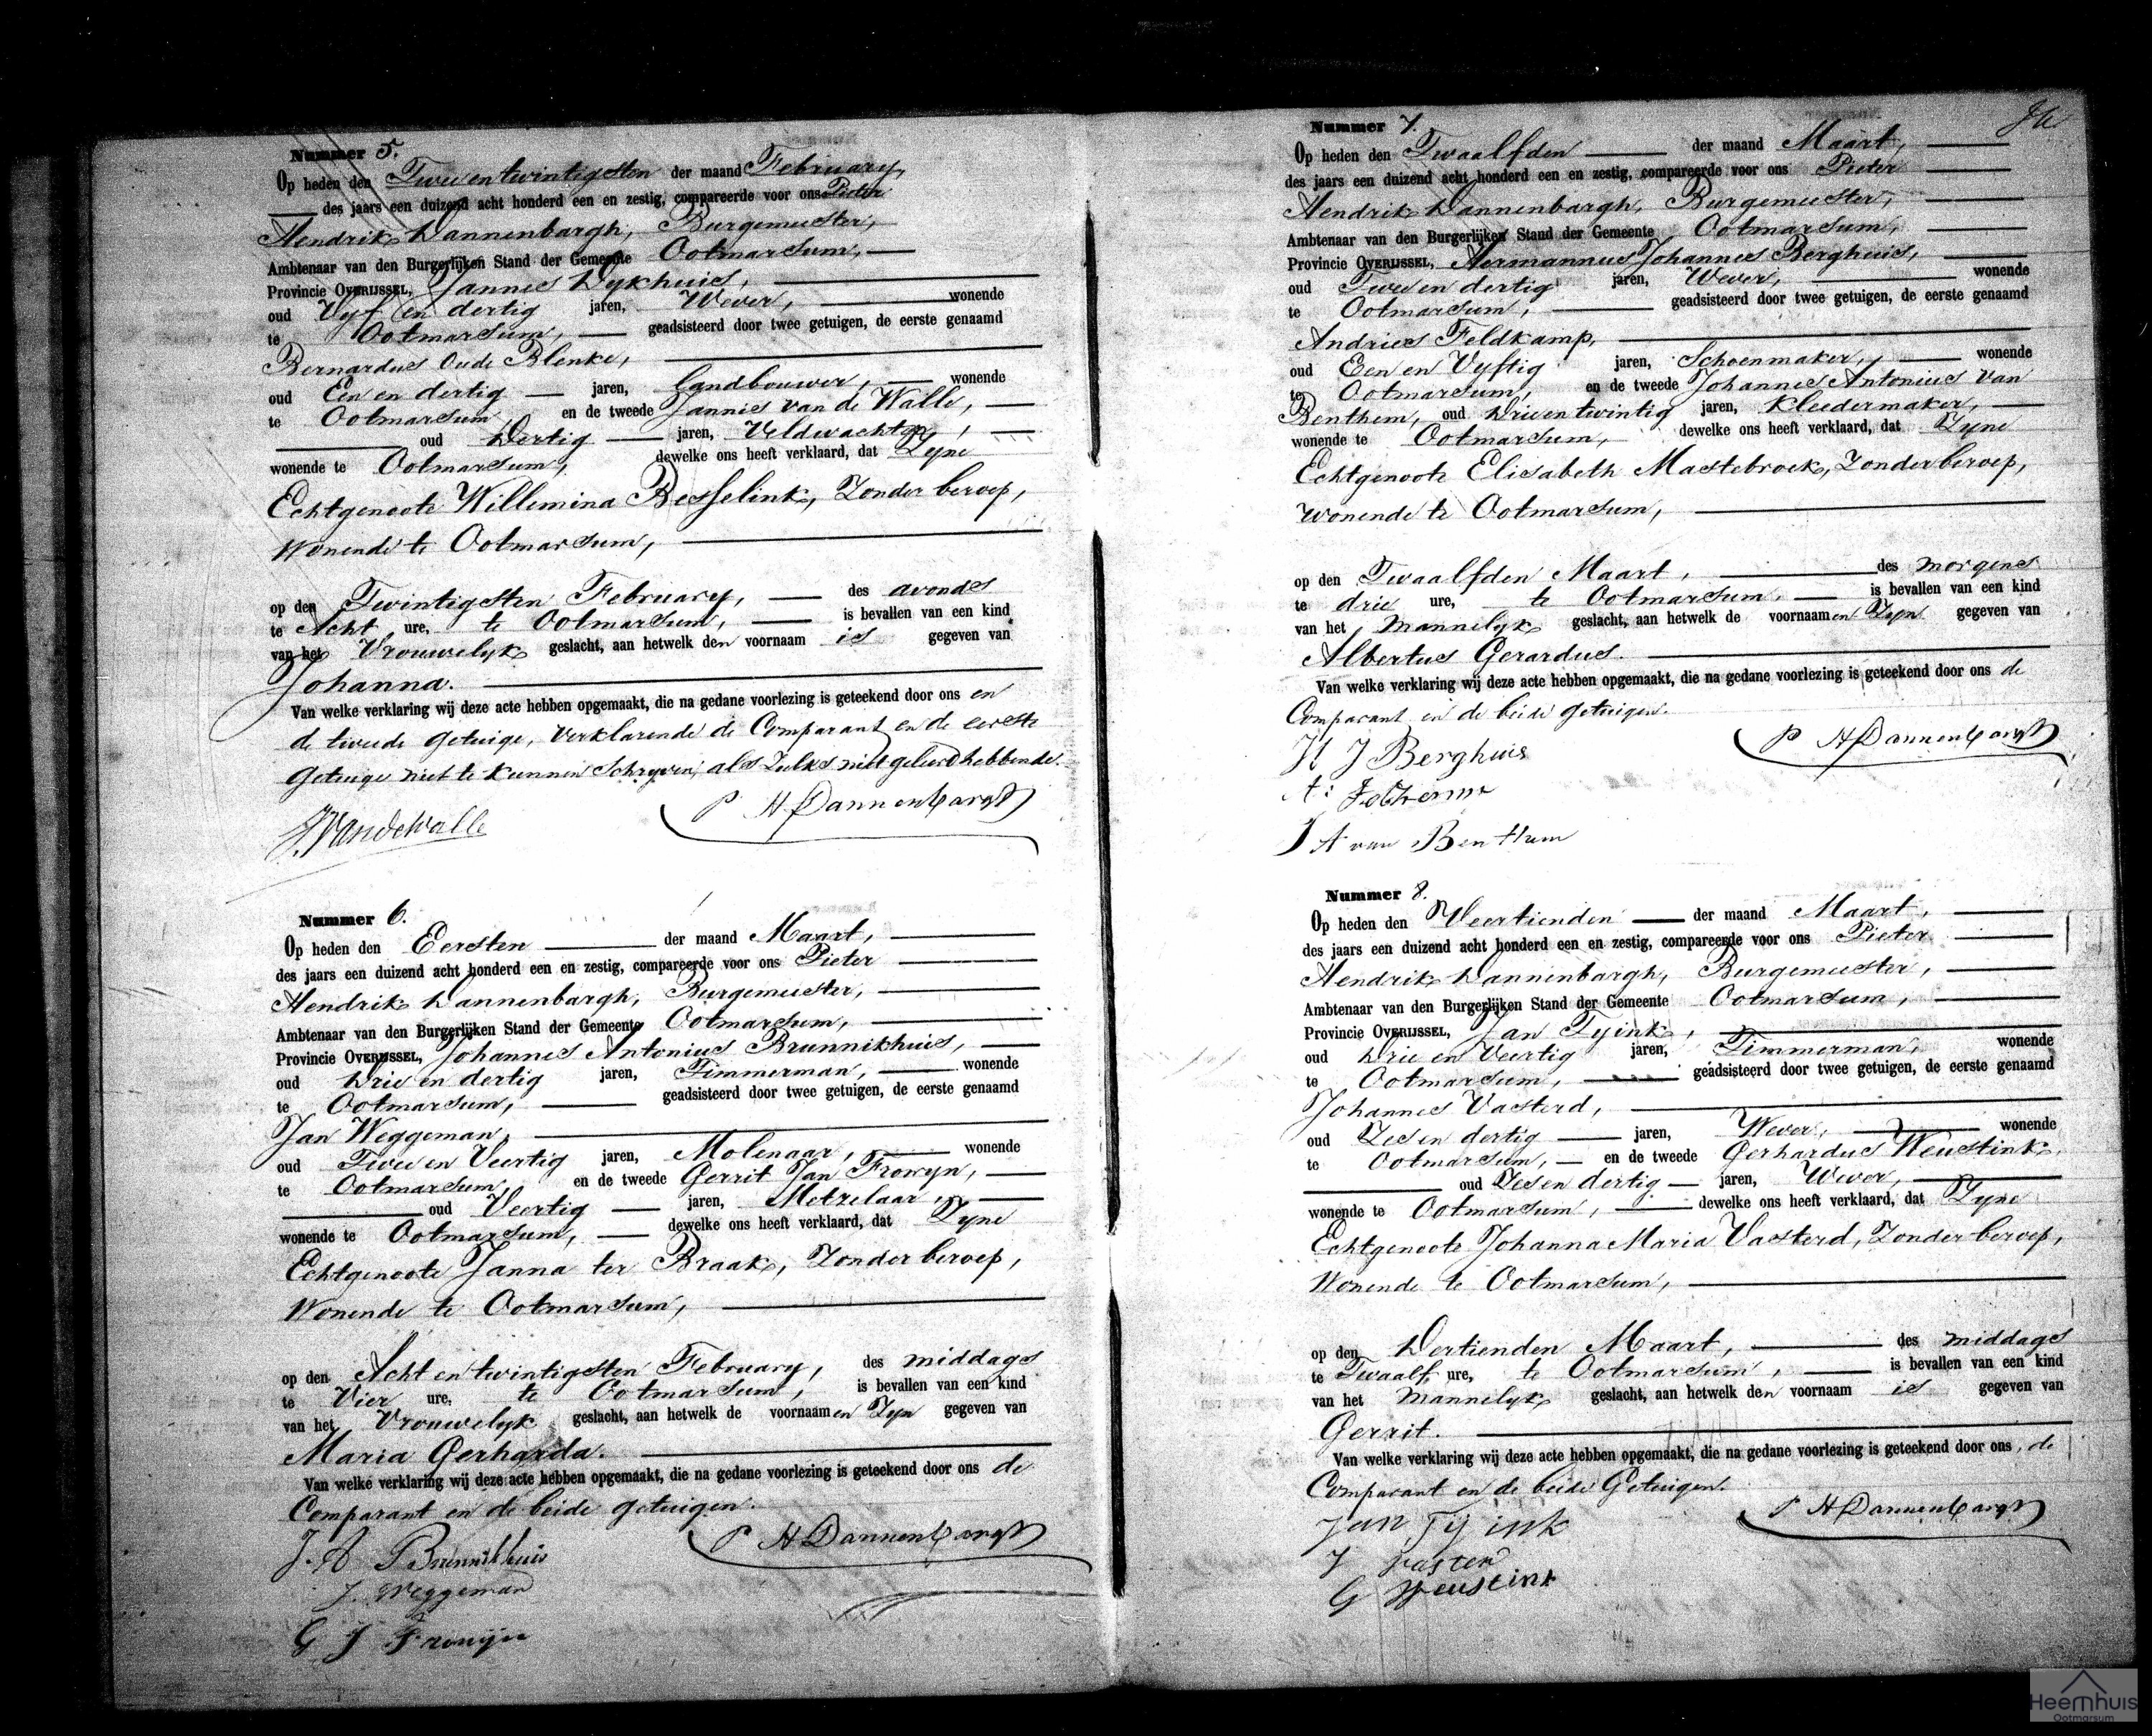 Nummer 5.
Op heden den Twee en twintigsten der maand February,
des jaars een duizend acht honderd een en zestig, compareerde voor ons Pieter
Hendrik Dannenbargh, Burgemeester,
Ambtenaar van den Burgerlijken Stand der Gemeente Ootmarsum,
Provincie OVERIJSSEL, Jannes Dykhuis,
oud Vyf en dertig jaren, Wever, wonende
te Ootmarsum, geadsisteerd door twee getuigen, de eerste genaamd
Bernardus Oude Blenke,
oud Een en dertig jaren, Landbouwer, wonende
te Ootmarsum en de tweede Jannes van de Walle,
oud Dertig jaren, Veldwachter,
wonende te Ootmarsum, dewelke ons heeft verklaard, dat Zyne
Echtgenoote Willemina Besselink, Zonder beroep,
Wonende te Ootmarsum,
op den Twintigsten February, des avonds
te Acht ure, te Ootmarsum, is bevallen van een kind
van het Vrouwelyk geslacht, aan hetwelk den voornaam is gegeven van
Johanna.
Van welke verklaring wij deze acte hebben opgemaakt, die na gedane voorlezing is geteekend door ons en
de tweede getuige, verklarende de Comparant en de eerste
getuige niet te kunnen Schryven, als Zulks niet geleerd hebbende.
P H Dannenbargh
J. Vandewalle
Nummer 6.
Op heden den Eersten der maand Maart,
des jaars een duizend acht honderd een en zestig, compareerde voor ons Pieter
Hendrik Dannenbargh, Burgemeester,
Ambtenaar van den Burgerlijken Stand der Gemeente Ootmarsum,
Provincie OVERIJSSEL, Johannes Antonius Brunnikhuis,
oud Drie en dertig jaren, Timmerman, wonende
te Ootmarsum, geadsisteerd door twee getuigen, de eerste genaamd
Jan Weggeman,
oud Twee en Veertig jaren, Molenaar, wonende
te Ootmarsum, en de tweede Gerrit Jan Frowyn,
oud Veertig jaren, Metzelaar,
wonende te Ootmarsum, dewelke ons heeft verklaard, dat Zyne
Echtgenoote Janna ter Braak, Zonder beroep,
Wonende te Ootmarsum,
op den Acht en twintigsten February, des middags
te Vier ure, te Ootmarsum, is bevallen van een kind
van het Vrouwelyk geslacht, aan hetwelk de voornaamen Zyn gegeven van
Maria Gerharda.
Van welke verklaring wij deze acte hebben opgemaakt, die na gedane voorlezing is geteekend door ons de
Comparant en de beide getuigen.
J. A Brunnikhuis P H Dannenbargh
J. Weggeman
G J Frowijn
Nummer 7.
Op heden den Twaalfden der maand Maart,
des jaars een duizend acht honderd een en zestig, compareerde voor ons Pieter
Hendrik Dannenbargh, Burgemeester,
Ambtenaar van den Burgerlijken Stand der Gemeente Ootmarsum,
Provincie OVERIJSSEL, Hermannus Johannes Berghuis,
oud Twee en dertig jaren, Wever, wonende
te Ootmarsum, geadsisteerd door twee getuigen, de eerste genaamd
Andries Feldkamp,
oud Een en Vyftig jaren, Schoenmaker, wonende
te Ootmarsum, en de tweede Johannes Antonius van
Benthem, oud Drie en twintig jaren, Kleedermaker,
wonende te Ootmarsum, dewelke ons heeft verklaard, dat Zyne
Echtgenoote Elisabeth Mastebroek, Zonder beroep,
wonende te Ootmarsum,
op den Twaalfden Maart, des morgens
te drie ure, te Ootmarsum, is bevallen van een kind
van het Mannelyk geslacht, aan hetwelk de voornaamen Zyn gegeven van
Albertus Gerardus.
Van welke verklaring wij deze acte hebben opgemaakt, die na gedane voorlezing is geteekend door ons de
Comparant en de beide getuigen.
H J Berghuis P H Dannenbargh
A:
J A van Benthem
Nummer 8.
Op heden den Veertienden der maand Maart,
des jaars een duizend acht honderd een en zestig, compareerde voor ons Pieter
Hendrik Dannenbargh, Burgemeester,
Ambtenaar van den Burgerlijken Stand der Gemeente Ootmarsum,
Provincie OVERIJSSEL, Jan Tyink,
oud Drie en Veertig jaren, Timmerman, wonende
te Ootmarsum, geadsisteerd door twee getuigen, de eerste genaamd
Johannes Vasterd,
oud Zes en dertig jaren, Wever, wonende
te Ootmarsum, en de tweede Gerhardus Weustink,
oud Zes en dertig jaren, Wever,
wonende te Ootmarsum, dewelke ons heeft verklaard, dat Zyne
Echtgenoote Johanna Maria Vasterd, Zonder beroep,
Wonende te Ootmarsum,
op den Dertienden Maart, des middags
te Twaalf ure, te Ootmarsum, is bevallen van een kind
van het Mannelyk geslacht, aan hetwelk den voornaam is gegeven van
Gerrit.
Van welke verklaring wij deze acte hebben opgemaakt, die na gedane voorlezing is geteekend door ons, de
Comparant en de beide Getuigen.
Jan Tyink P H Dannenbargh
J Vasterd
G Weustink
Heemhuis
Ootmarsum